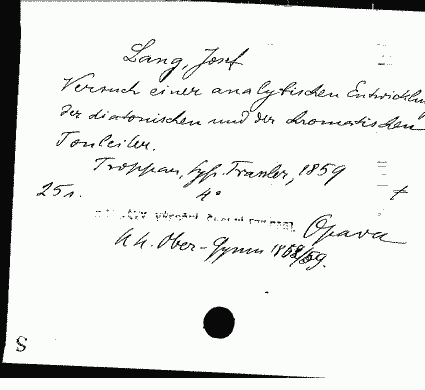 Lang, Josef
Versuch einer analytischen Entwicklung
der diatonischen und der chromatischen
Tonleiter.
Troppau, typ. Trassler, 1859
25 s. 4° +
Opava
k. k. Ober-Gymn 1858/59.
S